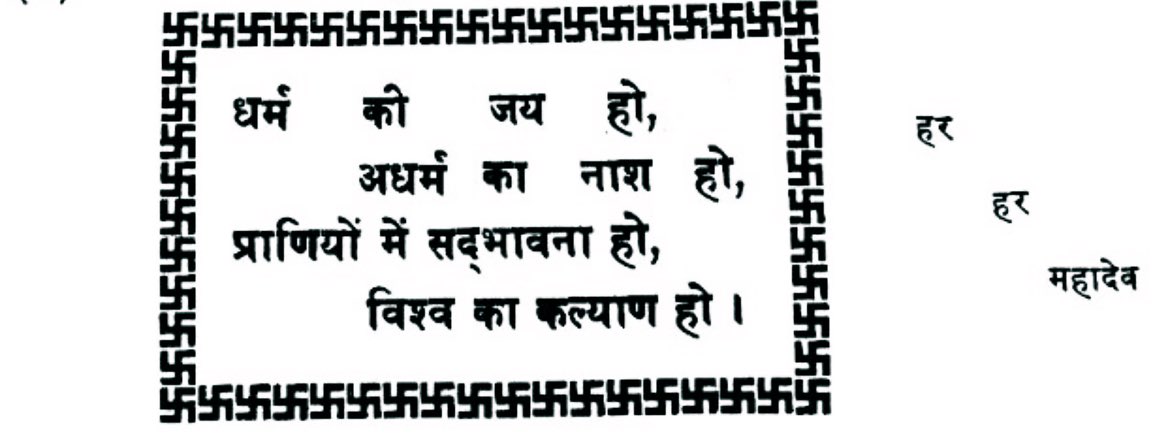 धर्म की जय हो,
अधर्म का नाश हो,
प्राणियों में सद्‌भावना हो,
विश्व का कल्याण हो ।
हर
हर
महादेव